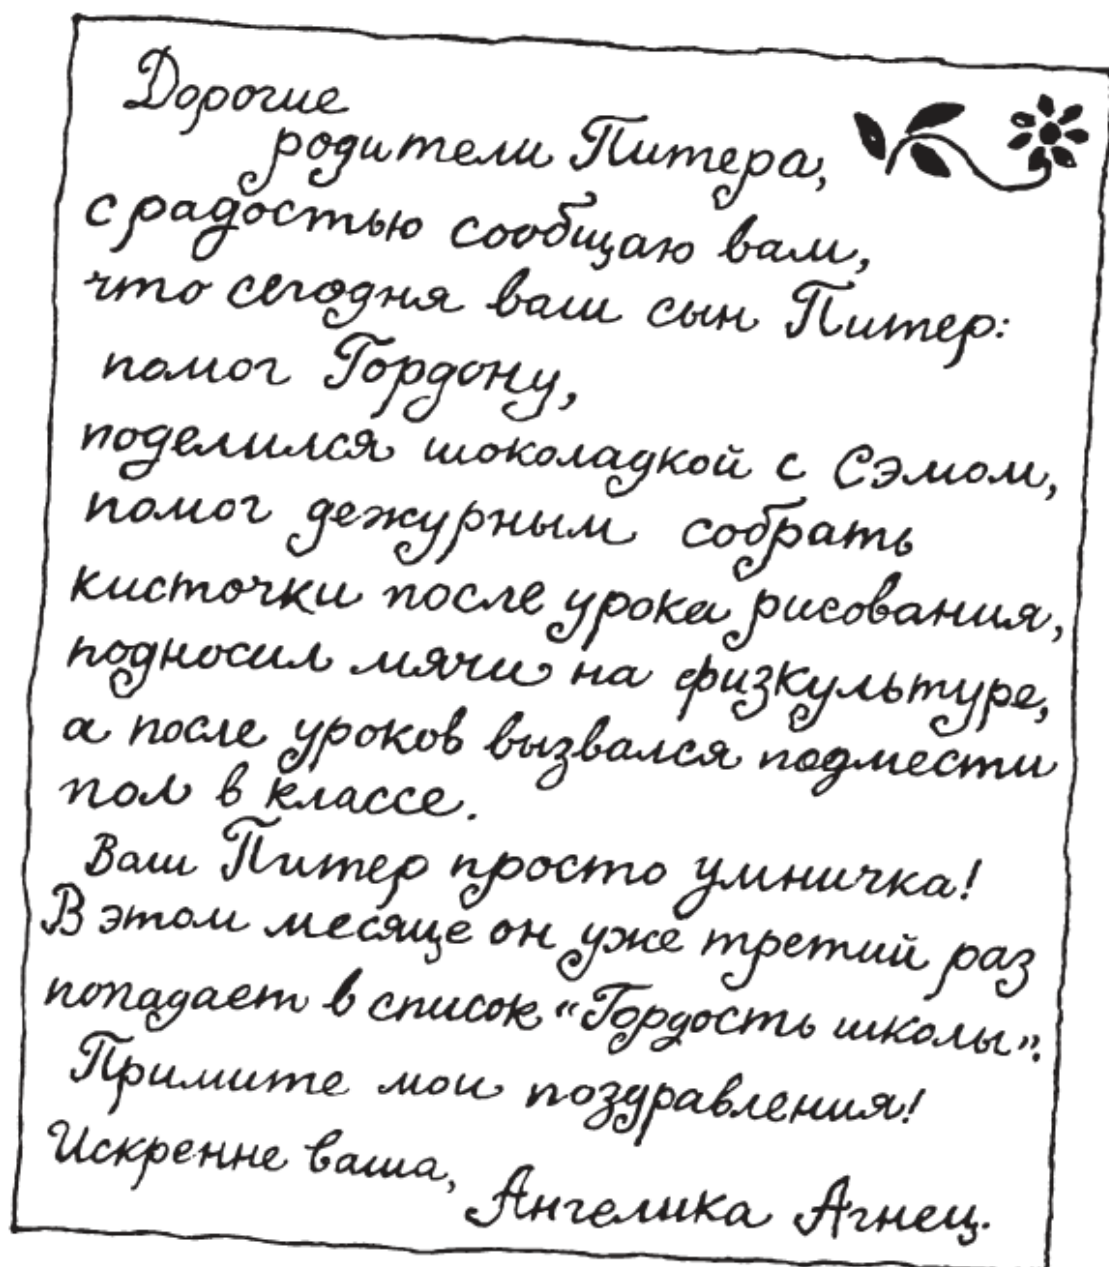 Дорогие
родители Питера,
с радостью сообщаю вам,
что сегодня ваш сын Питер:
помог Гордону,
поделился шоколадкой с Сэмом,
помог дежурным собрать
кисточки после урока рисования,
подносил мячи на физкультуре,
а после уроков вызвался подмести
пол в классе.
Ваш Питер просто умничка!
В этом месяце он уже третий раз
попадает в список "Гордость школы".
Примите мои поздравления!
Искренне ваша,
Ангелика Агнец.